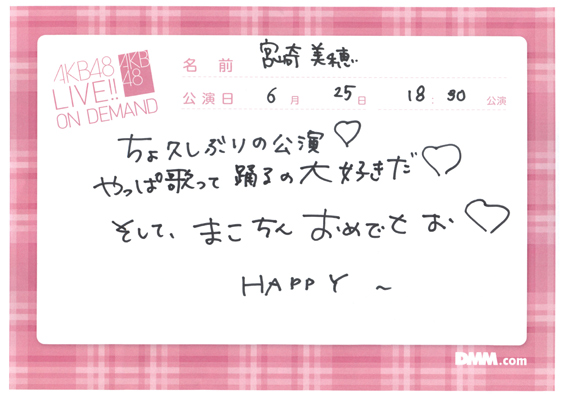 AKB48
LIVE!!
ON DEMAND
AKB
48
名 前 宮崎美穂
公演日 6月 25日 18:30 公演
ちょ久しぶりの公演♡
やっぱ歌って踊るの大好きだ♡
そして、まこちんおめでとお♡
HAPPY ~
DMM.com